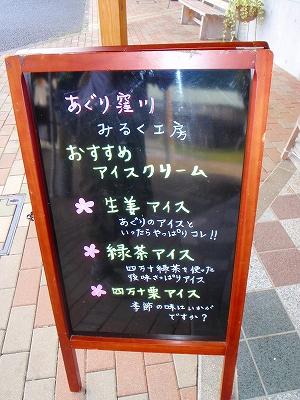 あぐり窪川
みるく工房
おすすめ
アイスクリーム
生姜アイス
あぐりのアイスと
いったらやっぱりコレ!!
緑茶アイス
四万十緑茶を使った
後味さっぱりアイス
四万十栗アイス
季節の味はいかが
ですか?